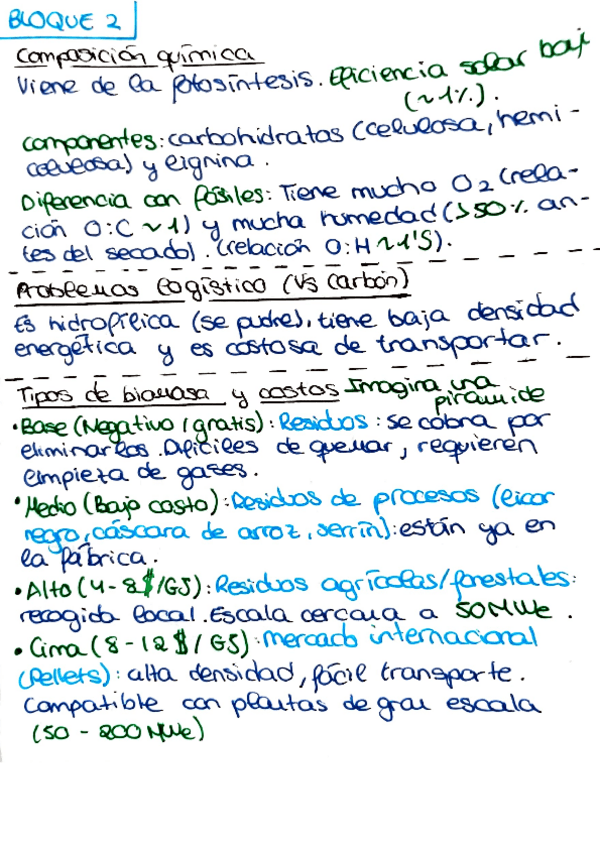 BLOQUE 2
Composición química
Viene de la fotosíntesis. Eficiencia solar baja
(~1%).
componentes: carbohidratos (celulosa, hemi-
celulosa) y lignina.
Diferencia con fósiles: Tiene mucho O2 (rela-
ción O:C ~1) y mucha humedad (>50% an-
tes del secado). (relación O:H ~1'5).
Problemas logístico (Vs Carbón)
Es hidrofílica (se pudre), tiene baja densidad
energética y es costosa de transportar.
Tipos de biomasa y costos Imagina una
pirámide
• Base (Negativo / gratis): Residuos: se cobra por
eliminarlos. Difíciles de quemar, requieren
limpieza de gases.
• Medio (Bajo costo): Residuos de procesos (licor
negro, cáscara de arroz, serrín): están ya en
la fábrica.
• Alto (4-8$/GJ): Residuos agrícolas/forestales:
recogida local. Escala cercana a 50MWe.
• Cima (8-12$/GJ): mercado internacional
(Pellets): alta densidad, fácil transporte.
Compatible con plantas de gran escala
(50 - 200 MWe)